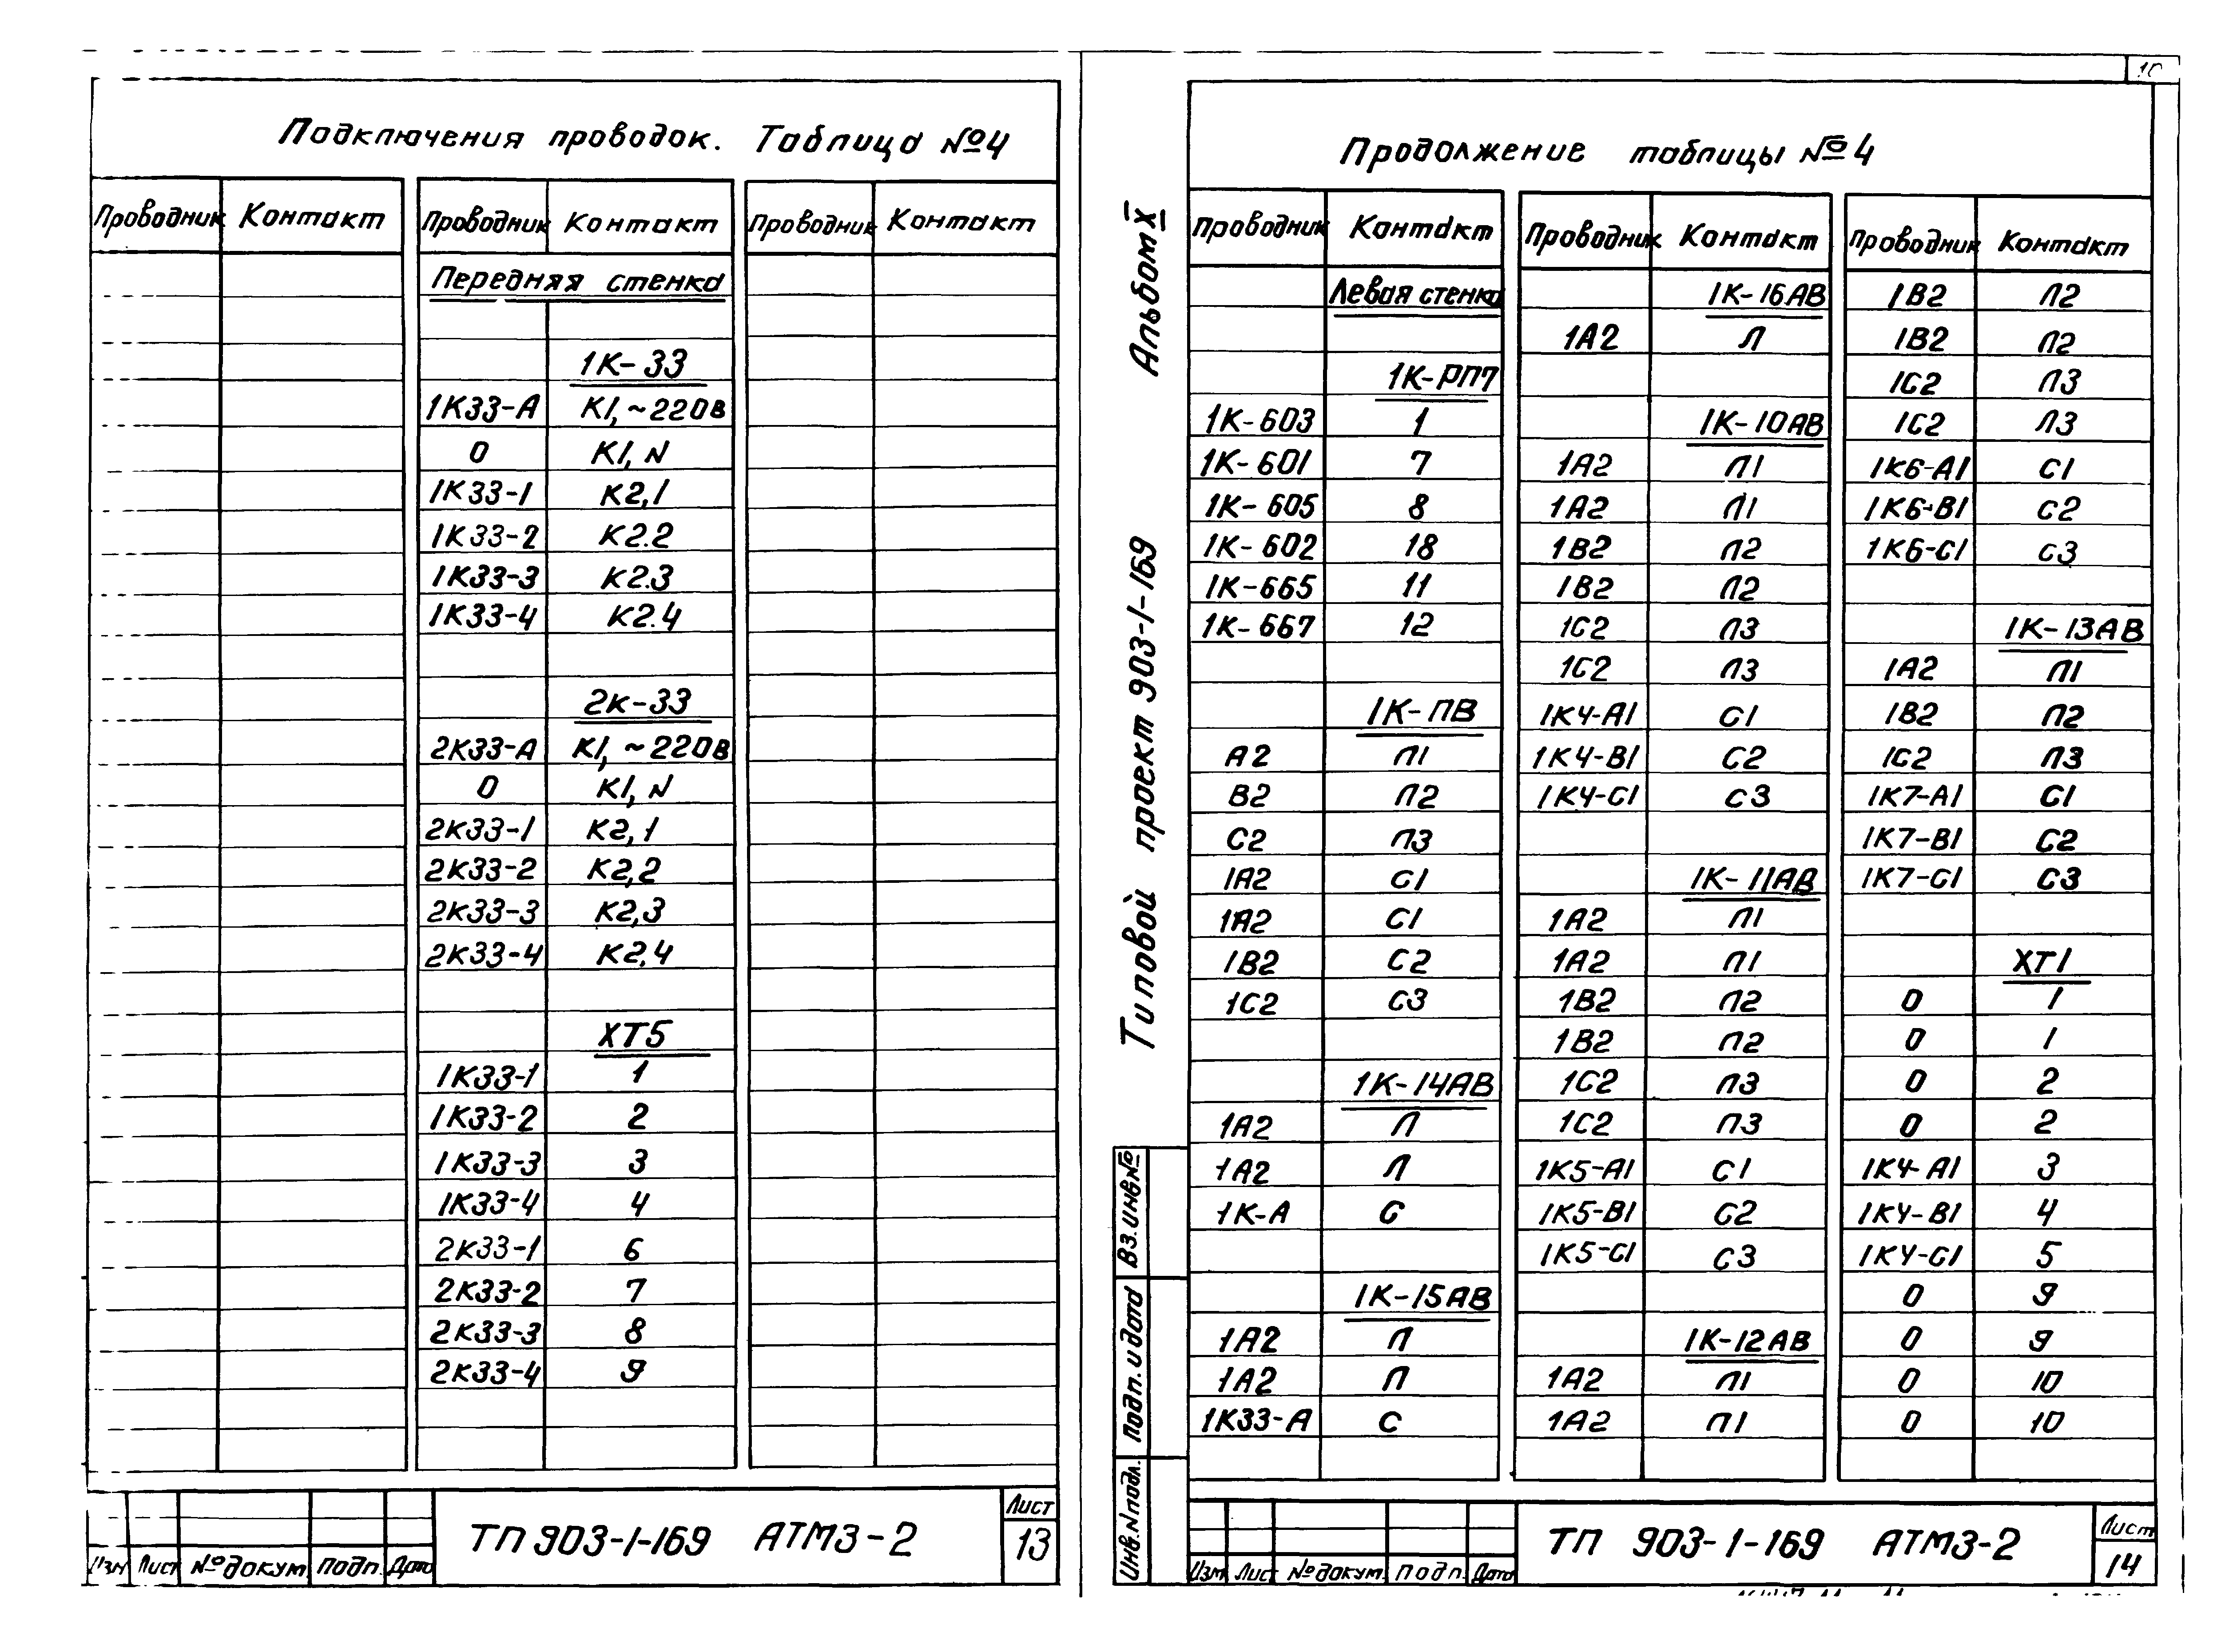 Подключения проводок. Таблица №4
Проводник Контакт Проводник Контакт Проводник Контакт
Передняя стенка
1К-33
1К33-А К1,~220в
0 К1, N
1К33-1 К2,1
1К33-2 К2.2
1К33-3 К2.3
1К33-4 К2.4
2К-33
2К33-А К1,~220в
0 К1, N
2К33-1 К2,1
2К33-2 К2,2
2К33-3 К2,3
2К33-4 К2,4
ХТ5
1К33-1 1
1К33-2 2
1К33-3 3
1К33-4 4
2К33-1 6
2К33-2 7
2К33-3 8
2К33-4 9
Изм Лист №докум подп. Дата
ТП 903-1-169 АТМ3-2
Лист
13
10
Альбом X
Типовой проект 903-1-169
Вз.инв№
Подп. и дата
Инв.N подл.
Продолжение таблицы №4
Проводник Контакт
Левая стенка
1К-РП7
1К-603 1
1К-601 7
1К-605 8
1К-602 18
1К-665 11
1К-667 12
1К-ПВ
А2 Л1
В2 Л2
С2 Л3
1А2 С1
1А2 С1
1В2 С2
1С2 С3
1К-14АВ
1А2 Л
1А2 Л
1К-А С
1К-15АВ
1А2 Л
1А2 Л
1К33-А С
Проводник Контакт
1К-16АВ
1А2 Л
1К-10АВ
1А2 Л1
1А2 Л1
1В2 Л2
1В2 Л2
1С2 Л3
1С2 Л3
1К4-А1 С1
1К4-В1 С2
1К4-С1 С3
1К-11АВ
1А2 Л1
1А2 Л1
1В2 Л2
1В2 Л2
1С2 Л3
1С2 Л3
1К5-А1 С1
1К5-В1 С2
1К5-С1 С3
1К-12АВ
1А2 Л1
1А2 Л1
Проводник Контакт
1В2 Л2
1В2 Л2
1С2 Л3
1С2 Л3
1К6-А1 С1
1К6-В1 С2
1К6-С1 С3
1К-13АВ
1А2 Л1
1В2 Л2
1С2 Л3
1К7-А1 С1
1К7-В1 С2
1К7-С1 С3
ХТ1
0 1
0 1
0 2
0 2
1К4-А1 3
1К4-В1 4
1К4-С1 5
0 9
0 9
0 10
0 10
Изм Лист №докум. подп. Дата
ТП 903-1-169 АТМ3-2
Лист
14